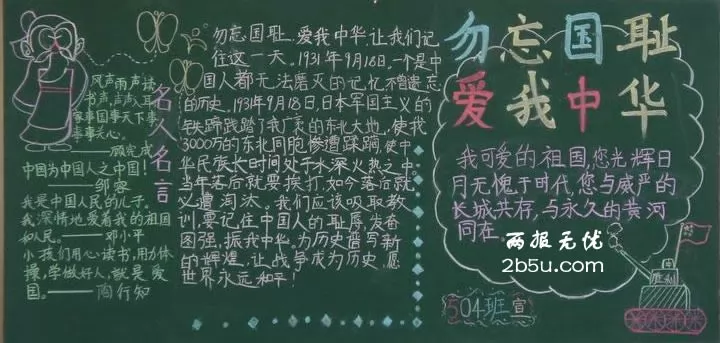 名人名言
风声雨声读
书声声声入耳
家事国事天下事
事事关心。
——顾宪成
中国为中国人之中国!
——邹容
我是中国人民的儿子。
我深情地爱着我的祖国
和人民。——邓小平
小孩们用心读书,用力体
操,学做好人,就是爱
国。——陶行知
勿忘国耻、爱我中华,让我们记
住这一天。1931年9月18日,一个是中
国人都无法磨灭的记忆不曾遗忘
的历史。1931年9月18日,日本军国主义的
铁蹄践踏了我广袤的东北大地,使我
3000万的东北同胞惨遭蹂躏,使中
华民族长时间处于水深火热之中。
当年落后就要挨打,如今落后就
必遭淘汰。我们应该吸取教
训,要记住中国人的耻辱,发奋
图强,振我中华,为历史谱写新
的辉煌,让战争成为历史,愿
世界永远和平!
勿忘国耻
爱我中华
我可爱的祖国,您光辉日
月无愧于时代,您与威严的
长城共存,与永久的黄河
同在。
两报无忧
2b5u.com
504班宣